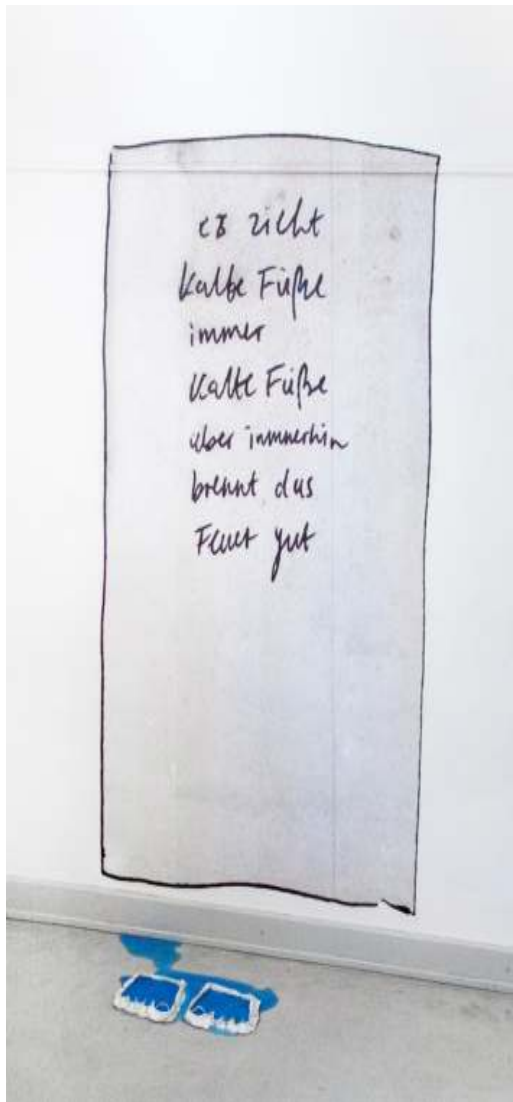 es zieht
kalte Füße
immer
kalte Füße
aber immerhin
brennt das
Feuer gut